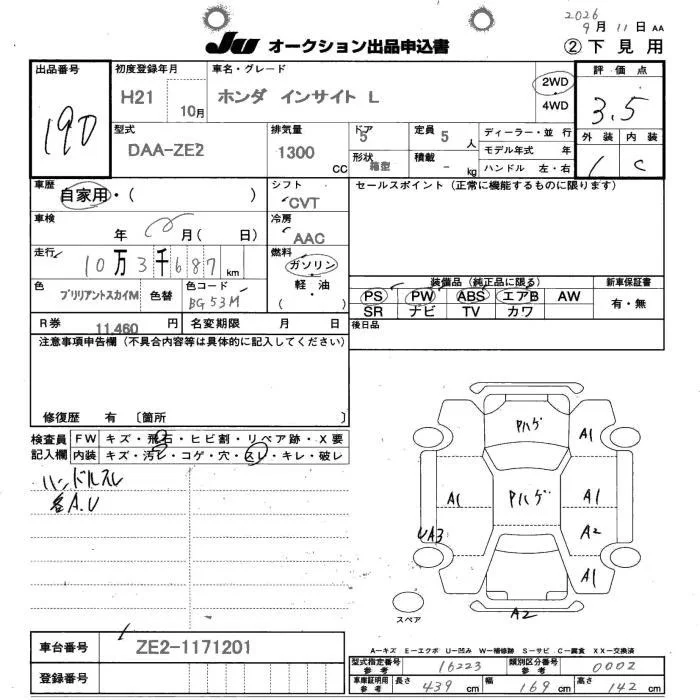 2026
9月11日 AA
JU オークション出品申込書 ②下見用
出品番号 初度登録年月 車名・グレード 評価点
190 H21 10月 ホンダ インサイト L 2WD 4WD 3.5
型式 排気量 ドア 定員 ディーラー・並行 外装 内装
DAA-ZE2 1300 CC 5 5人 モデル年式 年 1 C
形状 積載 ハンドル 左・右
箱型 - kg
車歴 自家用・( ) シフト CVT セールスポイント (正常に機能するものに限ります)
車検 年 月( 日) 冷房 AAC
走行 10万3千687 km 燃料 ガソリン 軽油 ( )
装備品 (純正品に限る) 新車保証書
色 ブリリアントスカイM 色替 色コード BG53M
PS PW ABS エアB AW 有・無
SR ナビ TV カワ
R券 11,460 円 名変期限 月 日 後日品
注意事項申告欄 (不具合内容等は具体的に記入してください)
修復歴 有 〔箇所 〕
検査員 FW キズ・飛石・ヒビ割・リペア跡・X要
記入欄 内装 キズ・汚レ・コゲ・穴・スレ・キレ・破レ
ハンドルスレ
各A.U
Pハゲ
A1
A1 Pハゲ A1
UA3 A2
A1
A2
スペア
A-キズ E-エクボ U-凹み W-補修跡 S-サビ C-腐食 XX-交換済
車台番号 ZE2-1171201
型式指定番号 参考 16223 類別区分番号 参考 0002
登録番号
車庫証明用 参考 長さ 439 cm 幅 169 cm 高さ 142 cm